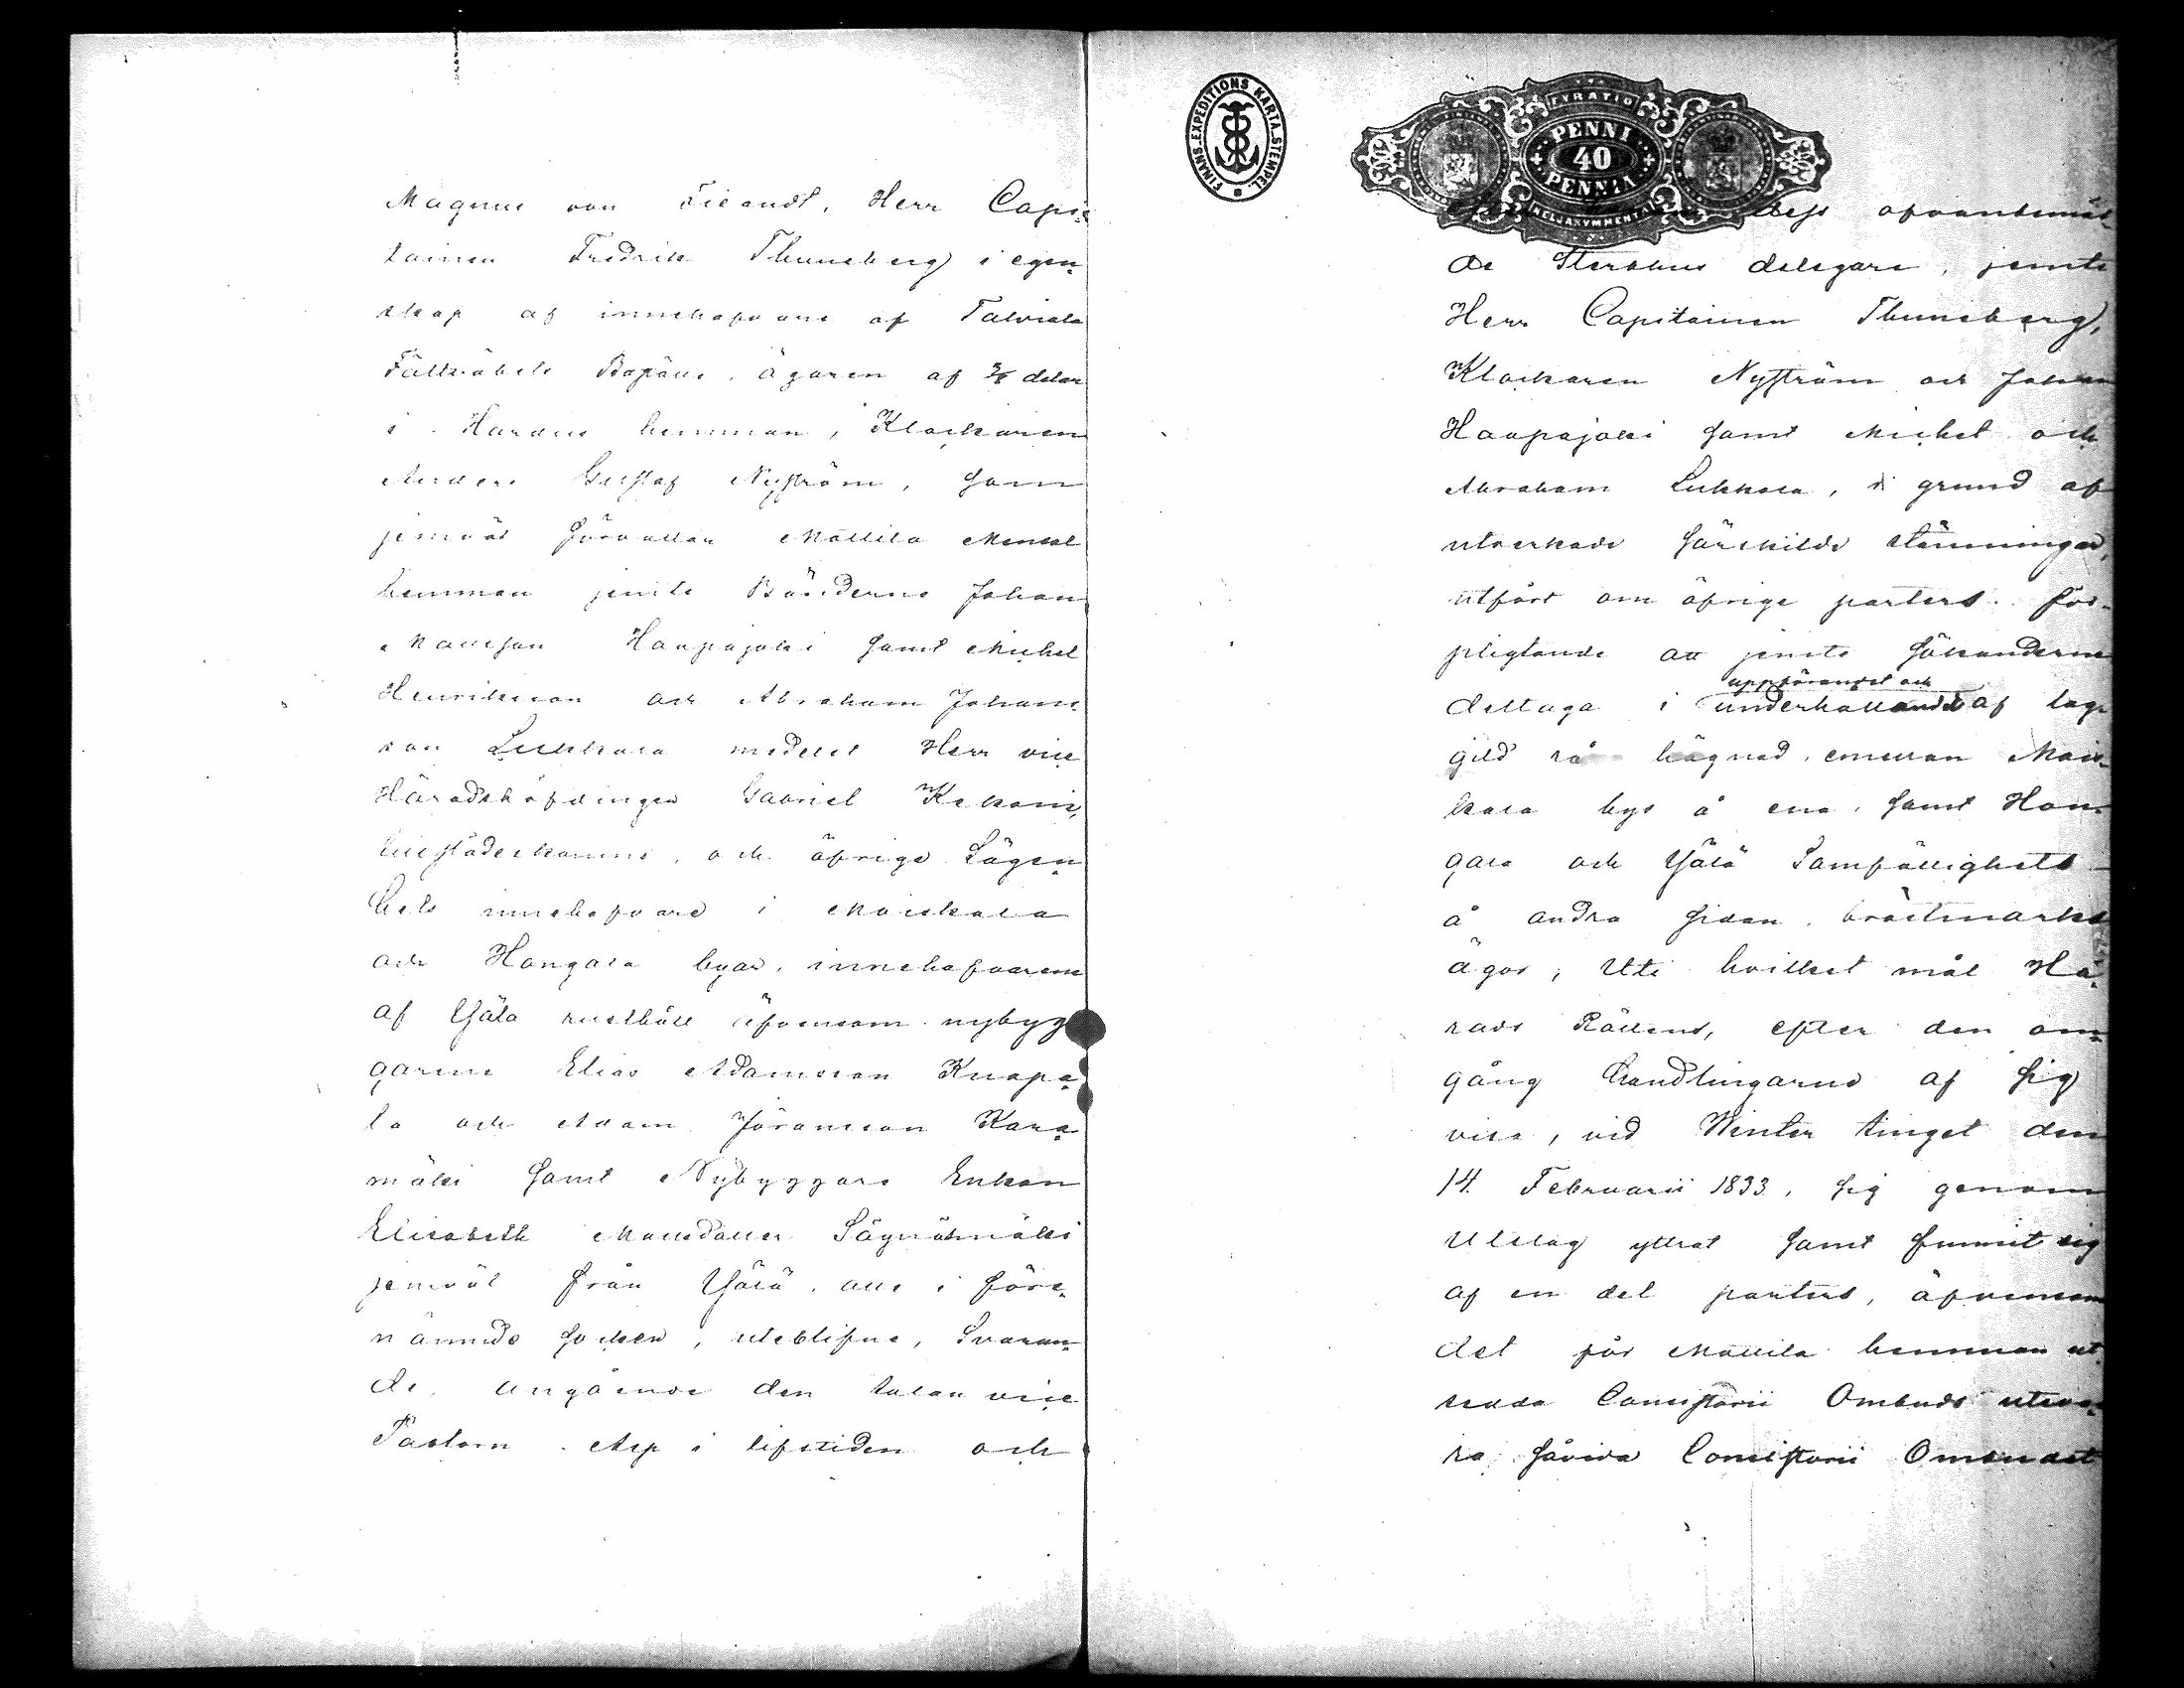 Magnus von Fieandt, Herr Capi-
tainen Fredrik Thuneberg i egen-
skap af innehafvare af Talviala
Fältväbels Boställe, ägaren af 3/8 delar
i Harous hemman, Klockaren
Anders Gustaf Nyström, som
jemväl förvaltar Mattila Mensal
hemman jemte Bönderne Johan
Mattsson Haapajoki samt Michel
Henriksson och Abraham Johans-
son Lukkala medelst Herr vice
Häradshöfdingen Gabriel Kekoni,
tillstädeskomne, och öfrige Lägen-
hets innehafvare i Maiskala
och Hongala byar, innehafvarene
af Yjälä rusthåll äfvensom nybyg-
garene Elias Adamsson Knapa-
la och Adam Jöransson Kara-
mäki samt Nybyggare Enkan
Elisabeth Mattsdotter Sägnäkmäki
jemväl från Yjälä, alle i före-
nämnde socken, uteblifne, Svaran-
de, angående den talan vice
Pastorn Asp i lifstiden och
FINANS. EXPEDITIONS KARTA. STEMPEL.
FYRATIO
PENNI
40
PENNIÄ
NELJÄKYMMENTÄ
dess ofvanbemäl-
de Sterbhus delegare, jemte
Herr Capitainen Thuneberg,
Klockaren Nyström och Johan
Haapajoki samt Michel och
Abraham Lukkala, i grund af
utverkade särskilde stämningar,
utfört om öfrige parters för-
pligtande att jemte sökanderne
deltaga i uppförandet och underhållandet af lag-
gild rå hägnad, emellan Mais-
kala bys å ena, samt Hon-
gala och Yjälä Samfällighets
å andra sidan, bråtmarks
ägor; Uti hvilket mål Hä-
rads Rättens, efter den om-
gång handlingarne af sig
visa, vid Winter tinget den
14. Februarii 1833, sig genom
Utslag yttrat samt funnit sig
af en del parters, äfvensom
det för Mattila hemman ut-
sedda Consistorii Ombuds uteva-
ro, såvida Consistorii Ombudet